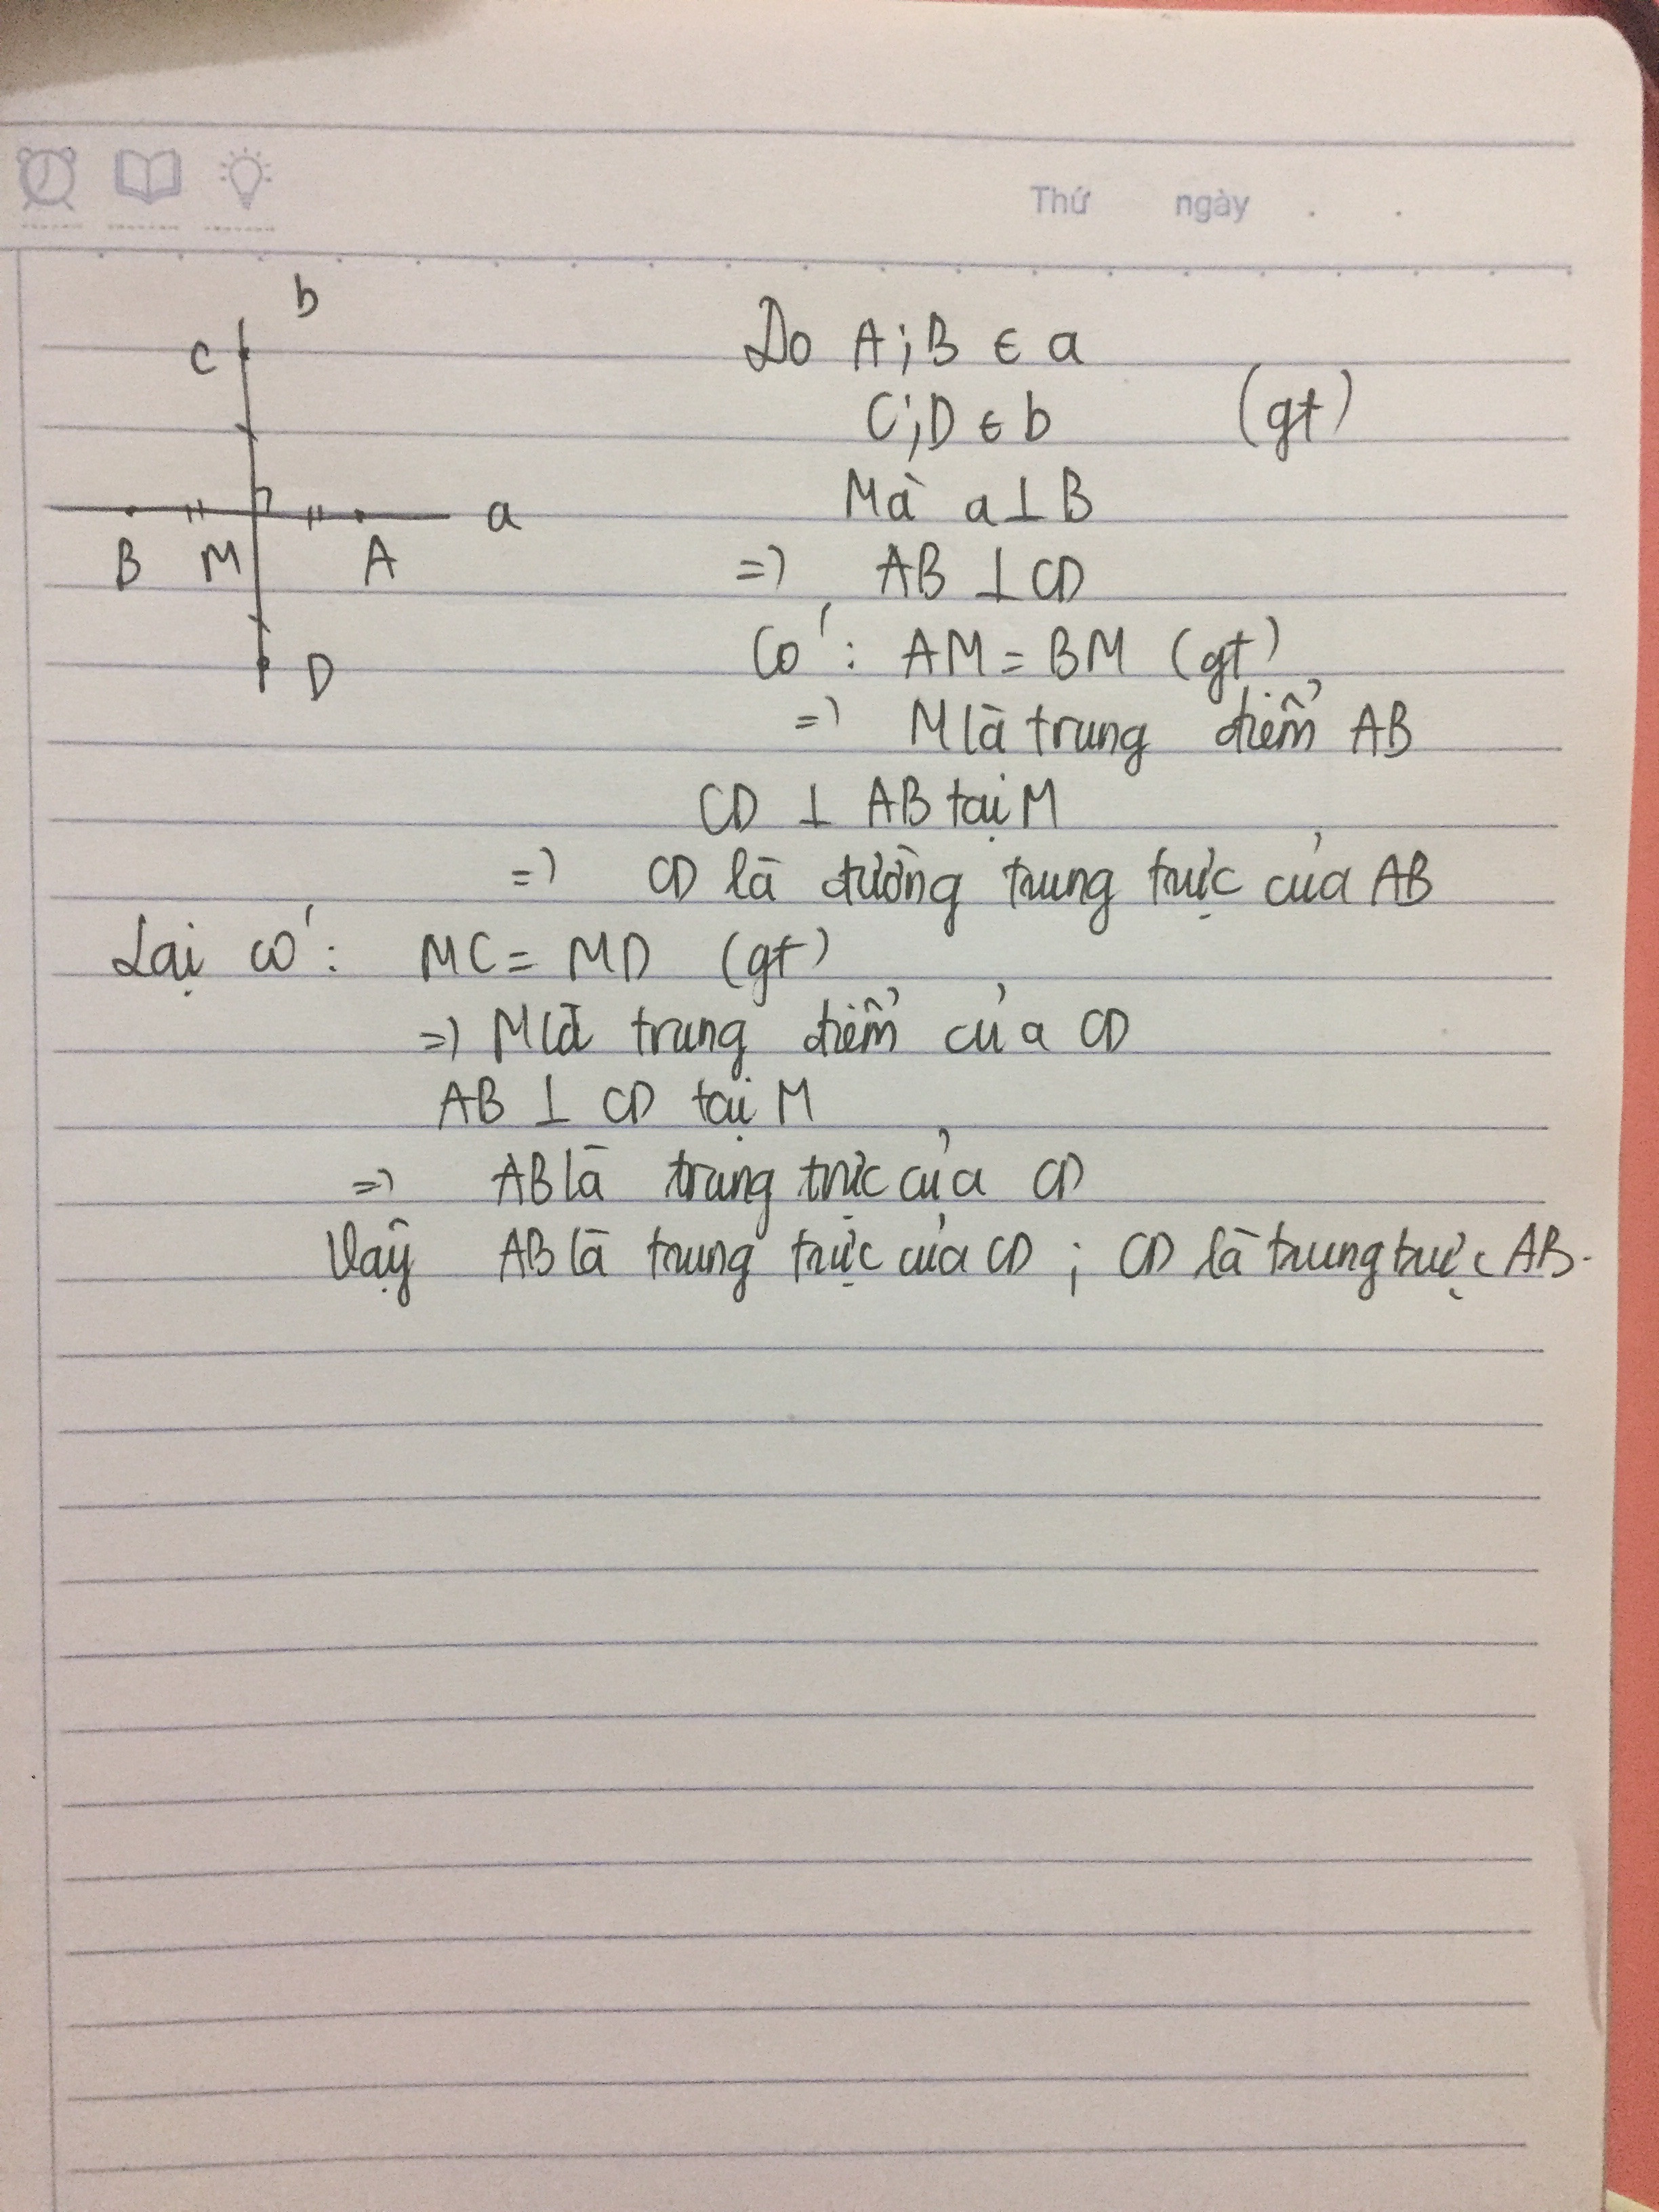 Thứ ngày . .
b
C
a
B M A
D
Do A;B ∈ a
C;D ∈ b (gt)
Mà a⊥B
=> AB ⊥ CD
Có : AM = BM (gt)
=> M là trung điểm AB
CD ⊥ AB tại M
=> CD là đường trung trực của AB
Lại có : MC = MD (gt)
=> M là trung điểm của CD
AB ⊥ CD tại M
=> AB là trung trực của CD
Vậy AB là trung trực của CD ; CD là trung trực AB.